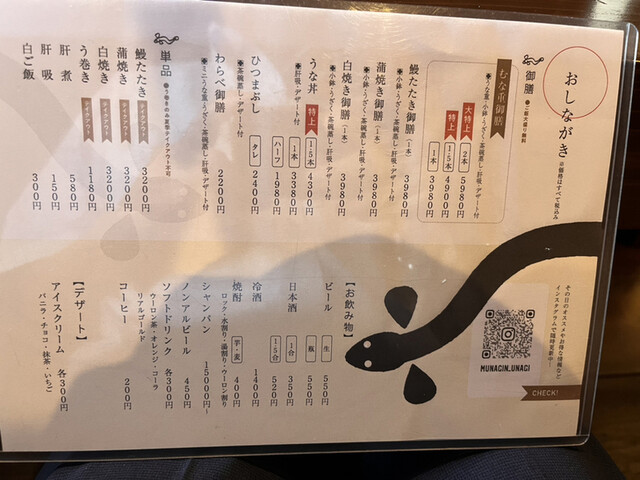 おしながき ※価格はすべて税込み
御膳 ●ご飯大盛り無料
むな重御膳
●うな重・小鉢・うざく・茶碗蒸し・肝吸・デザート付
大特上 2本 5980円
特上 1.5本 4900円
1本 3980円
鰻たたき御膳（1本） 3980円
●小鉢・うざく・茶碗蒸し・肝吸・デザート付
蒲焼き御膳（1本） 3980円
●小鉢・うざく・茶碗蒸し・肝吸・デザート付
白焼き御膳（1本） 3980円
●小鉢・うざく・茶碗蒸し・肝吸・デザート付
うな丼 特上 1.5本 4300円
●肝吸・デザート付
1本 3380円
ハーフ 1980円
ひつまぶし タレ 2400円
●茶碗蒸し・デザート付
わらべ御膳 2200円
●ミニうな重・うざく・茶碗蒸し・肝吸・デザート付
単品 ●う巻きのみ夏季テイクアウト不可
鰻たたき テイクアウト 3200円
蒲焼き テイクアウト 3200円
白焼き テイクアウト 3200円
う巻き テイクアウト 1180円
肝煮 580円
肝吸 150円
白ご飯 300円
その日のオススメやお得な情報など
インスタグラムで随時更新中！
MUNAGIN_UNAGI
CHECK!
【お飲み物】
ビール 生 550円
瓶 550円
日本酒 1合 350円
1.5合 520円
冷酒 1400円
焼酎 芋・麦 400円
ロック・水割り・湯割り・ウーロン割り
シャンパン 15000円〜
ノンアルビール 450円
ソフトドリンク 各300円
ウーロン茶・オレンジ・コーラ
リアルゴールド
コーヒー 200円
【デザート】
アイスクリーム 各300円
バニラ・チョコ・抹茶・いちご